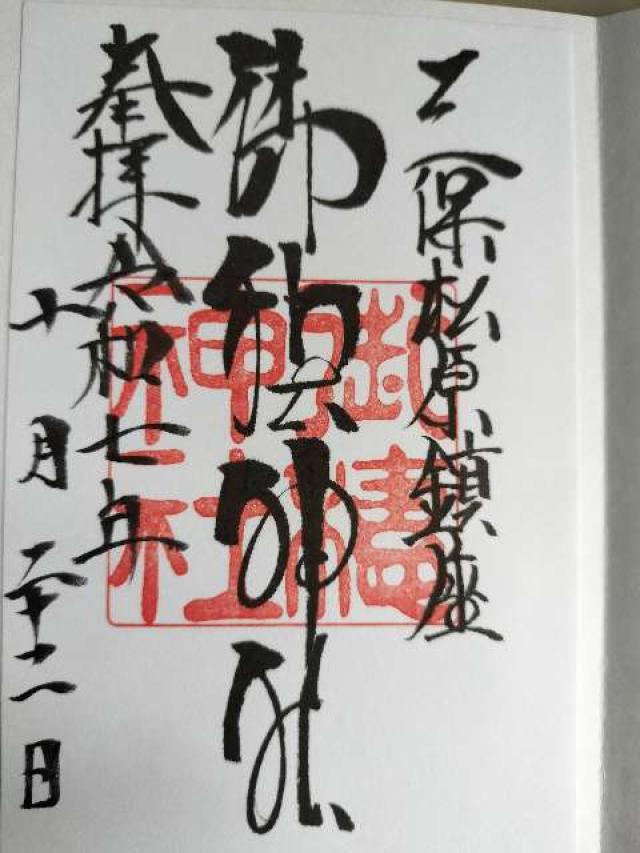 三保松原鎮座
御穂神社
奉拝 令和七年
十月二十二日
御穂
神社